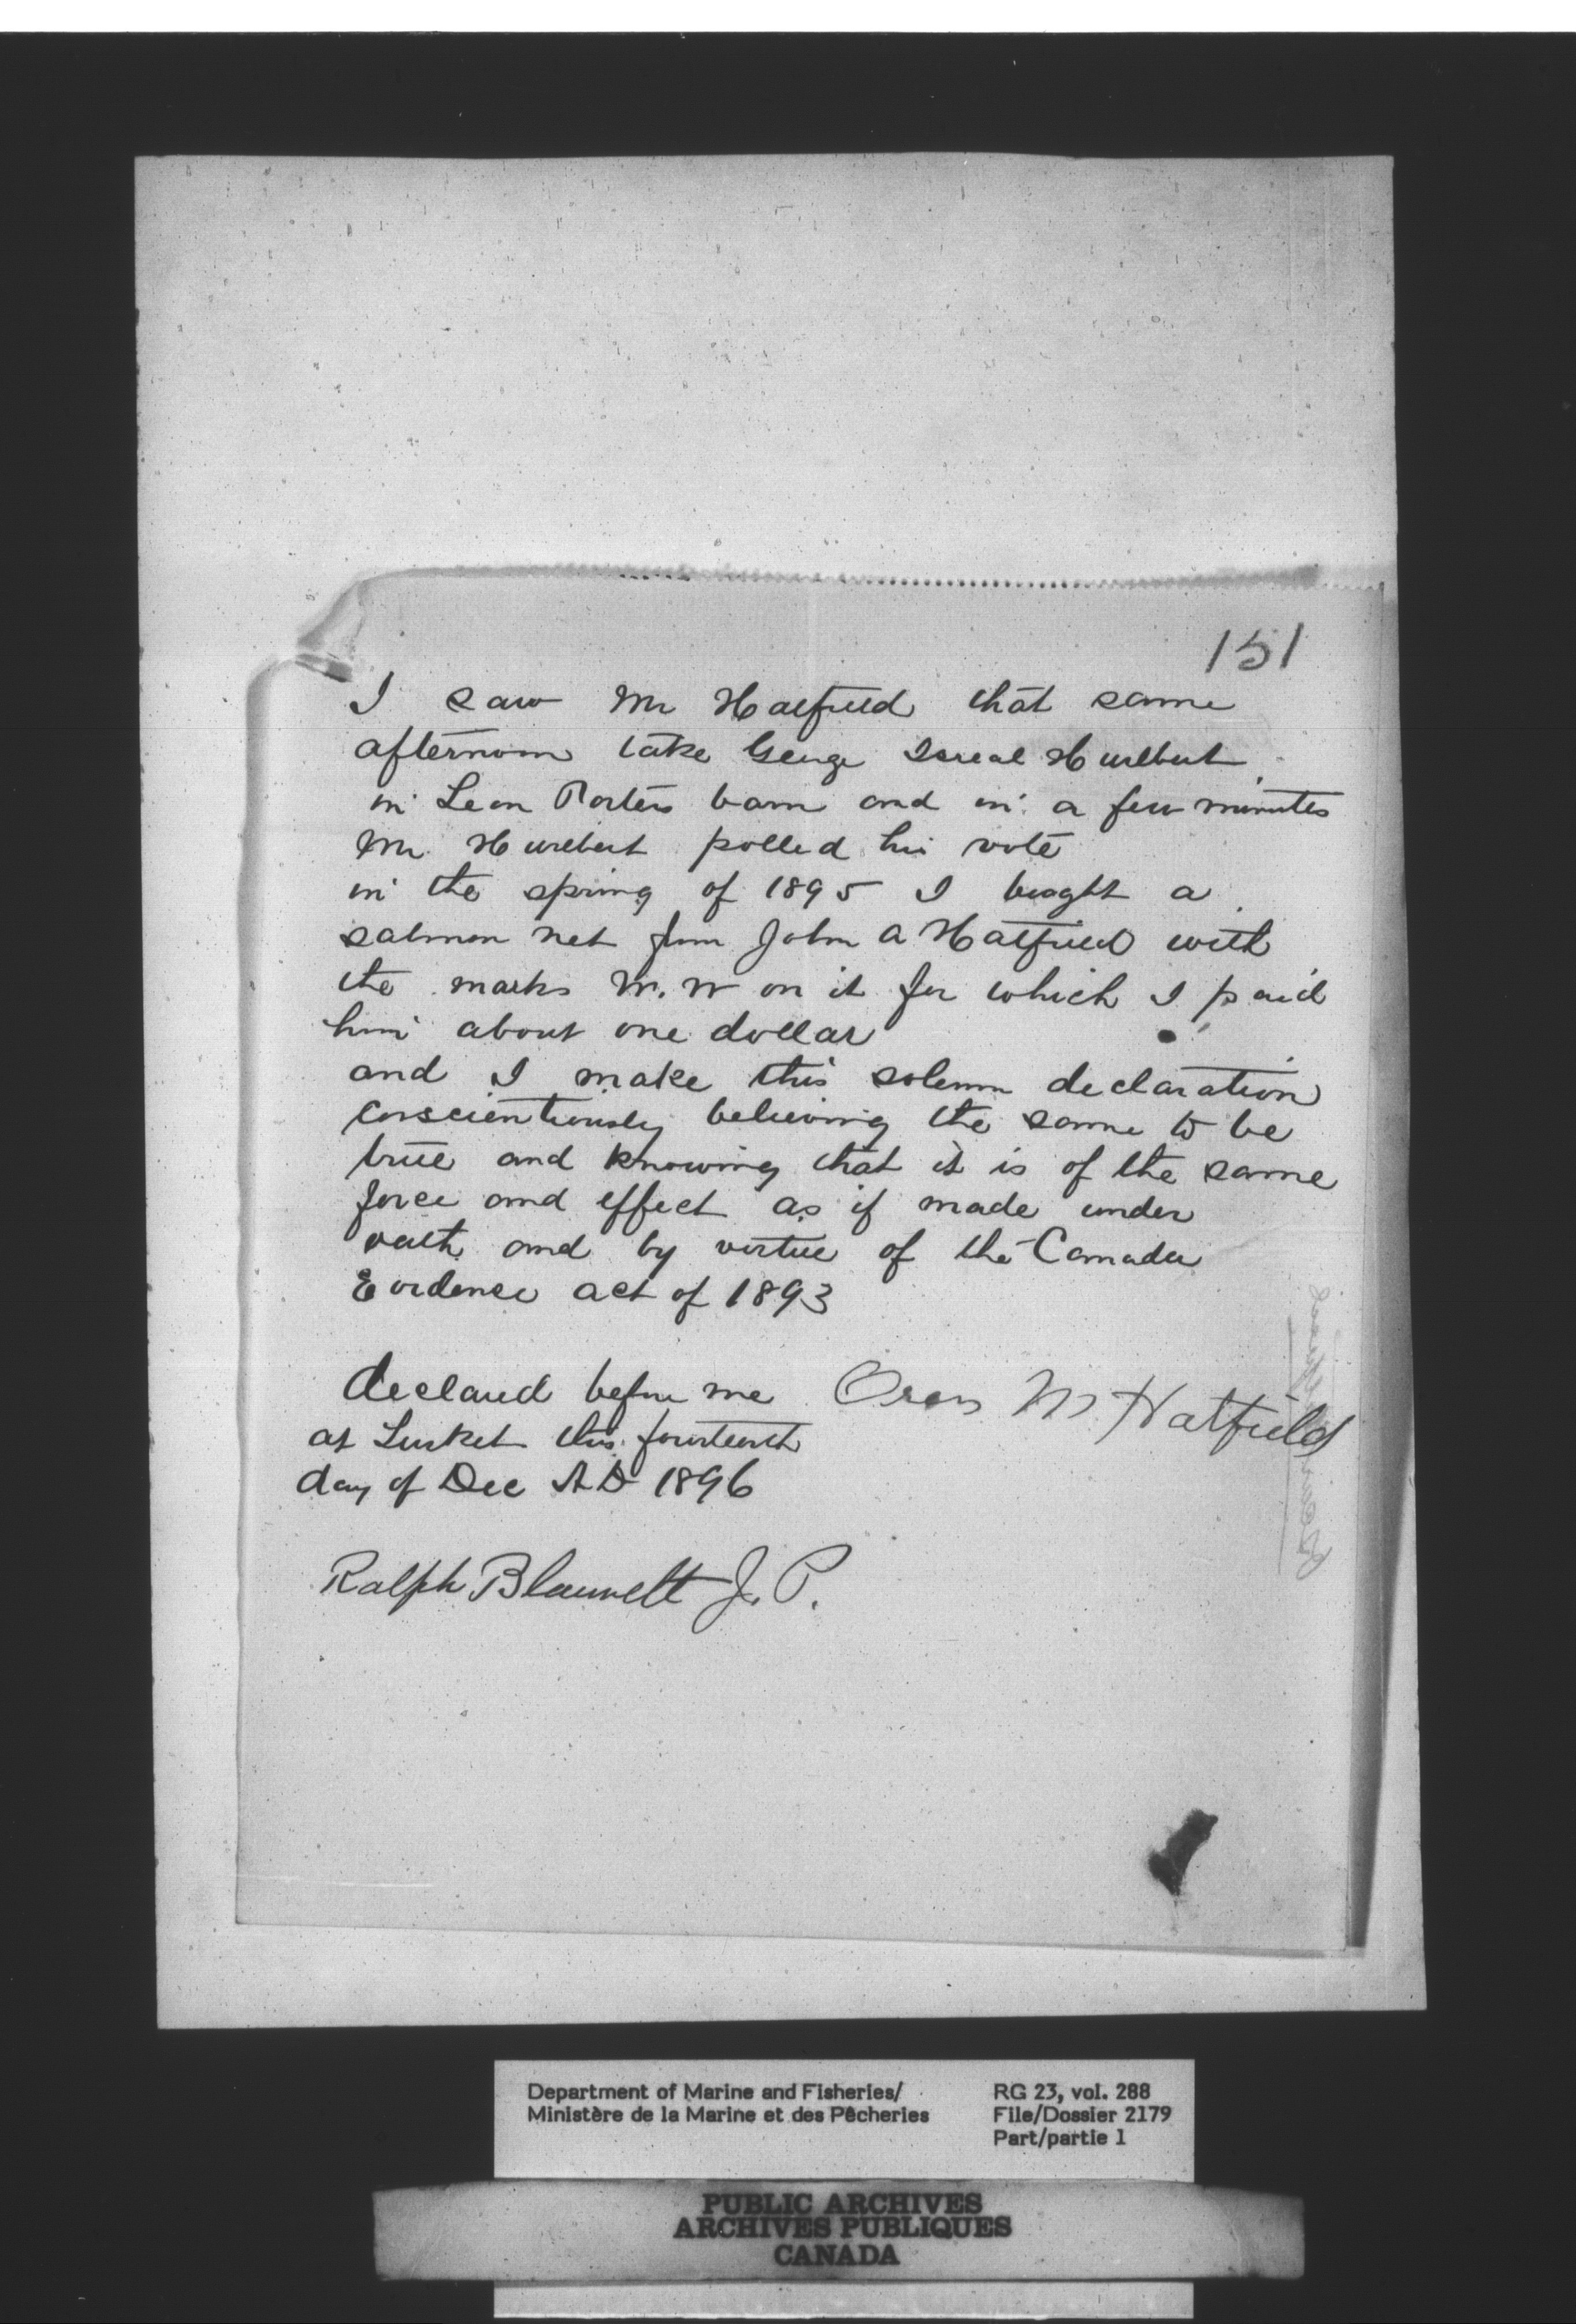 151
I saw Mr Hatfield that same
afternoon take George Isreal Hurlbert
in Leon Porters barn and in a few minutes
Mr. Hurlbert polled his vote
in the spring of 1895 I bought a
salmon net from John A Hatfield with
the marks M. W on it for which I paid
him about one dollar
and I make this solemn declaration
conscientiously believing the same to be
true and knowing that it is of the same
force and effect as if made under
oath and by virtue of the Canada
Evidence act of 1893
declared before me Oran M. Hatfield
at Tusket this fourteenth
day of Dec AD 1896
Ralph Blauvelt J. P.
Department of Marine and Fisheries/
Ministère de la Marine et des Pêcheries
RG 23, vol. 288
File/Dossier 2179
Part/partie 1
PUBLIC ARCHIVES
ARCHIVES PUBLIQUES
CANADA